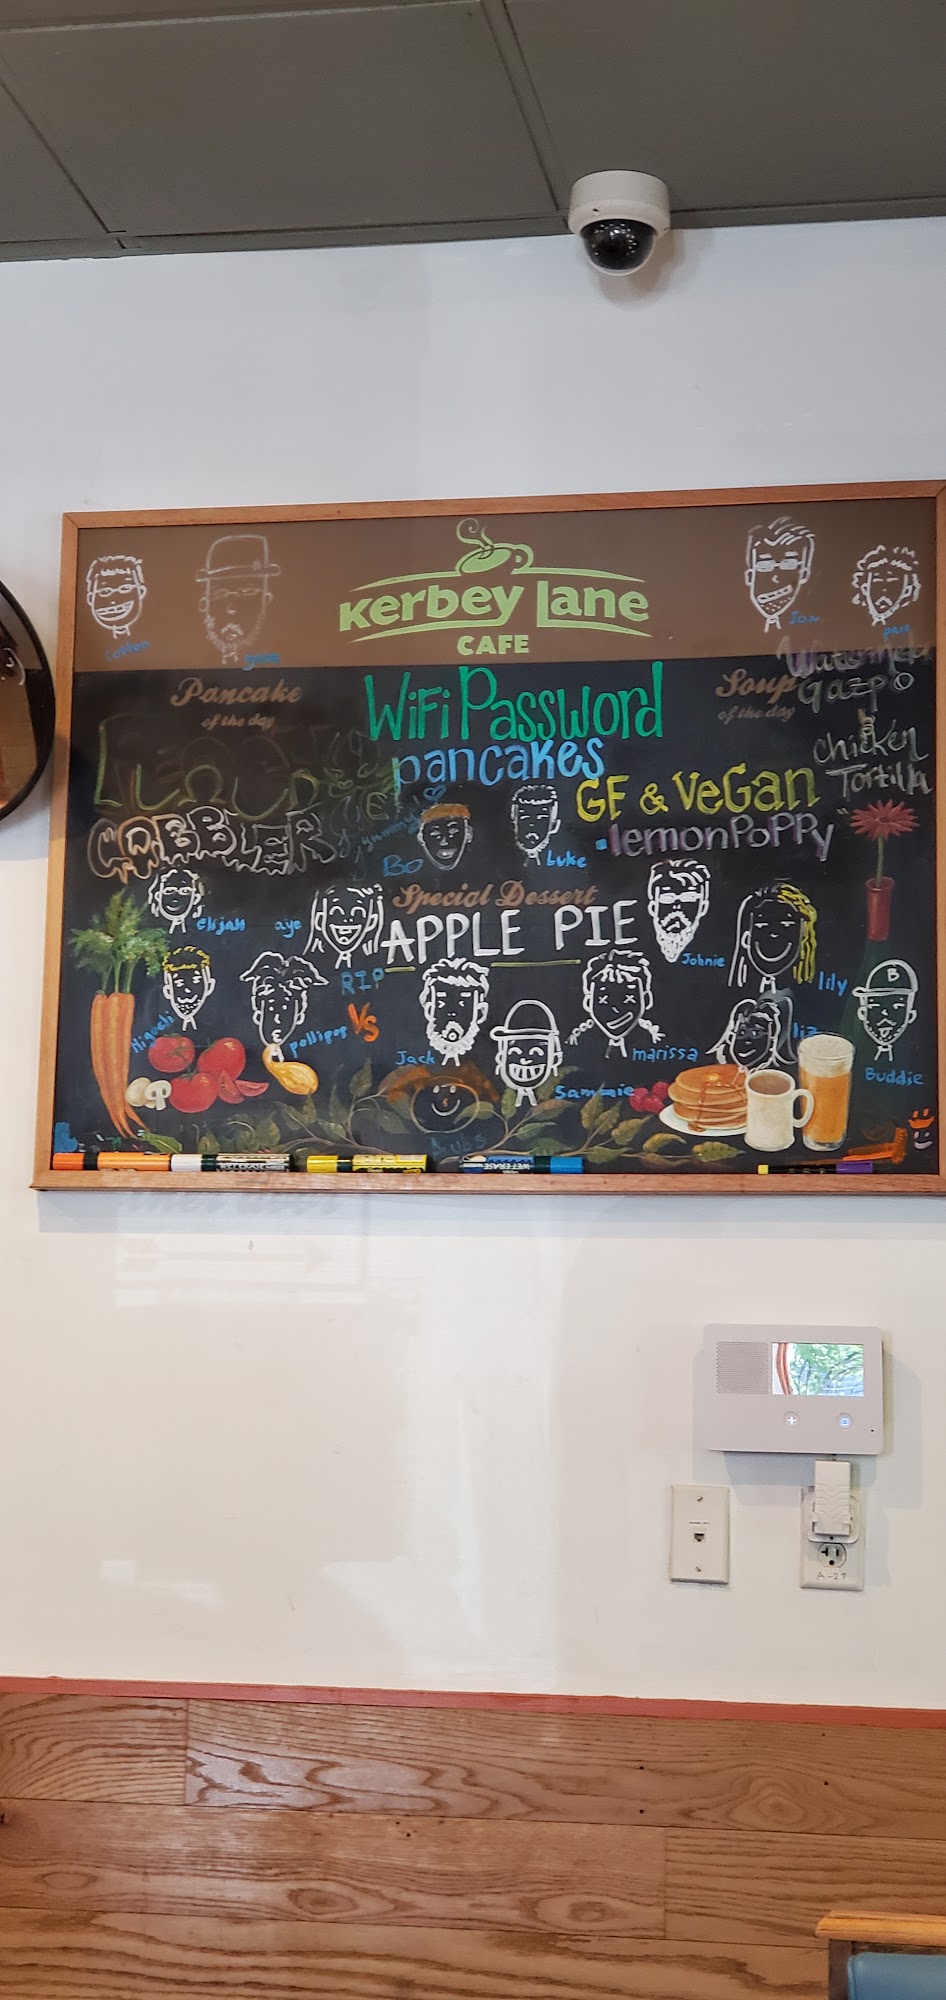 Kerbey Lane
CAFE
Cotton
Jon
Pancake
of the day
WiFi Password
pancakes
Soup
of the day
Gazpo
Chicken
Tortilla
COBBLER
yummy
GF & VeGan
lemon PoPPy
Bo
Luke
Special Dessert
APPLE PIE
elijah
aye
Johnie
lily
RIP
VS
Jack
Sammie
marissa
liz
B
Buddie
WET ERASE
A-27